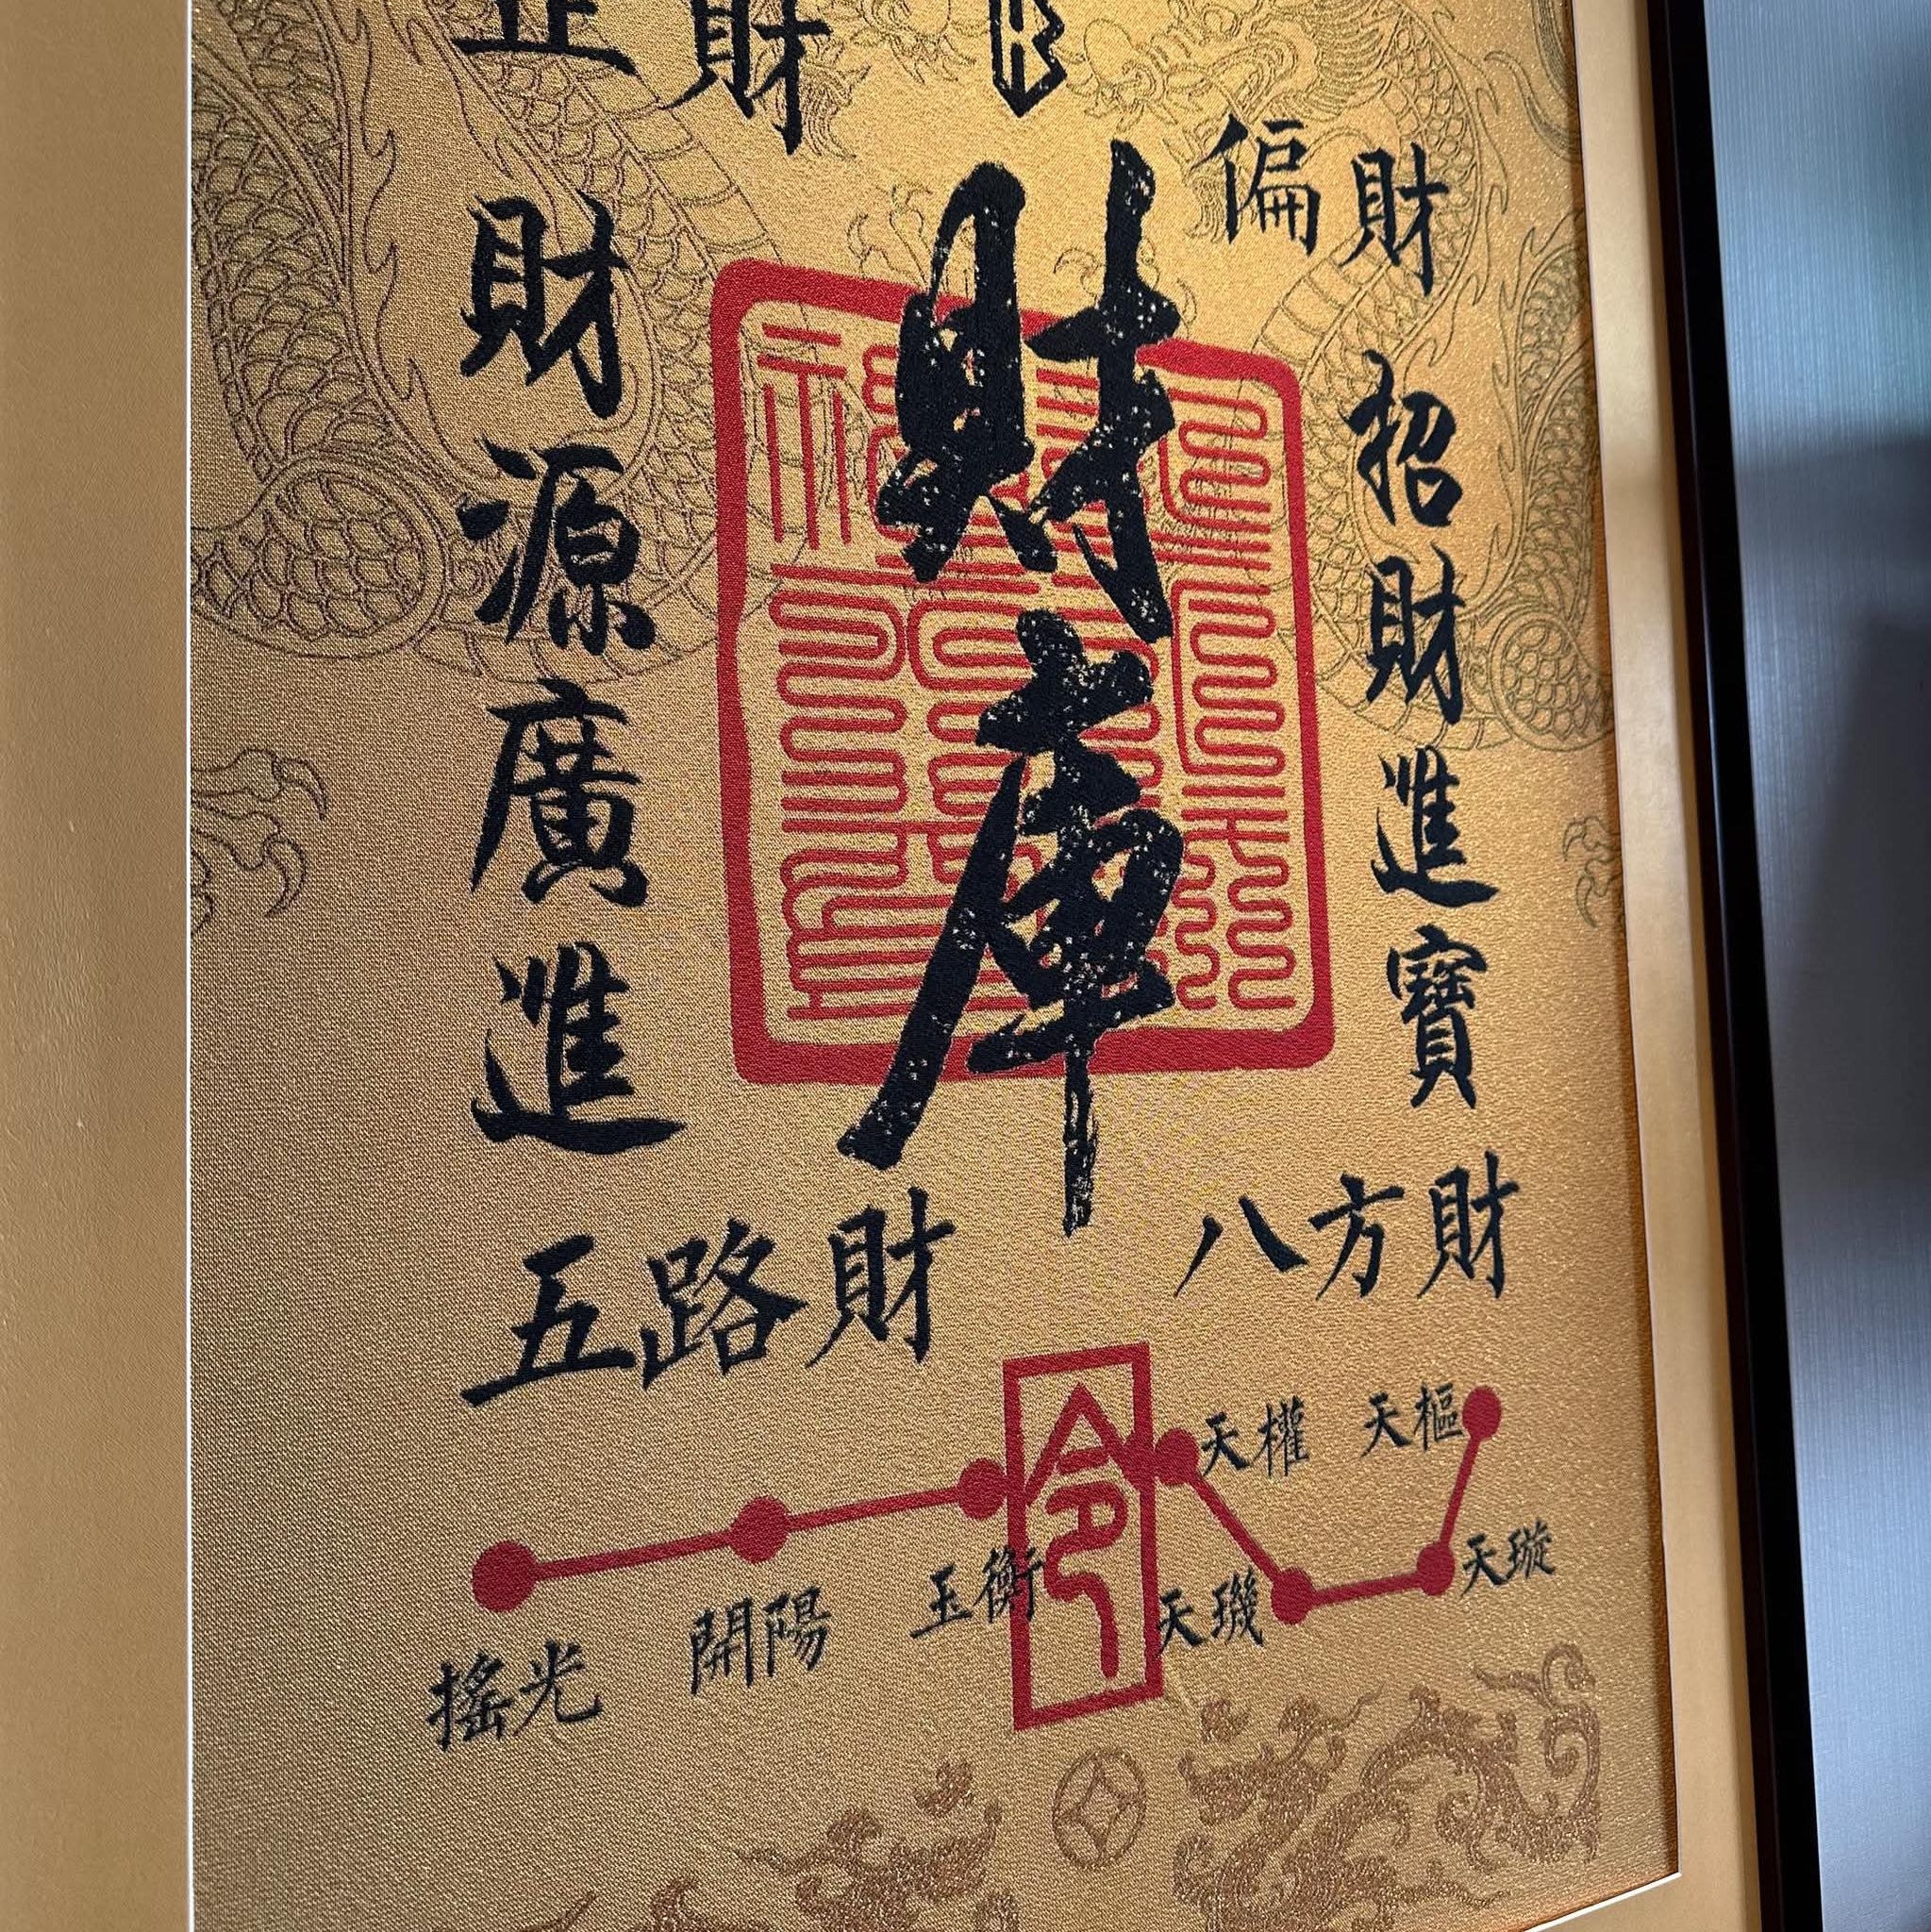 正財
偏財
財庫
財源廣進
招財進寶
五路財
八方財
令
天權
天樞
玉衡
天璣
天璇
開陽
搖光